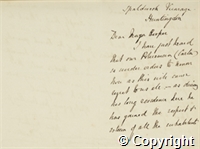 Spaldwick Vicarage
Huntingdon
Dear Major Hooper
I have just heard
that our Policeman (Curtis)
is under orders to remove
from as this will cause
regret to us all – as during
his long residence here he
has gained the respect &
esteem of all the inhabitants